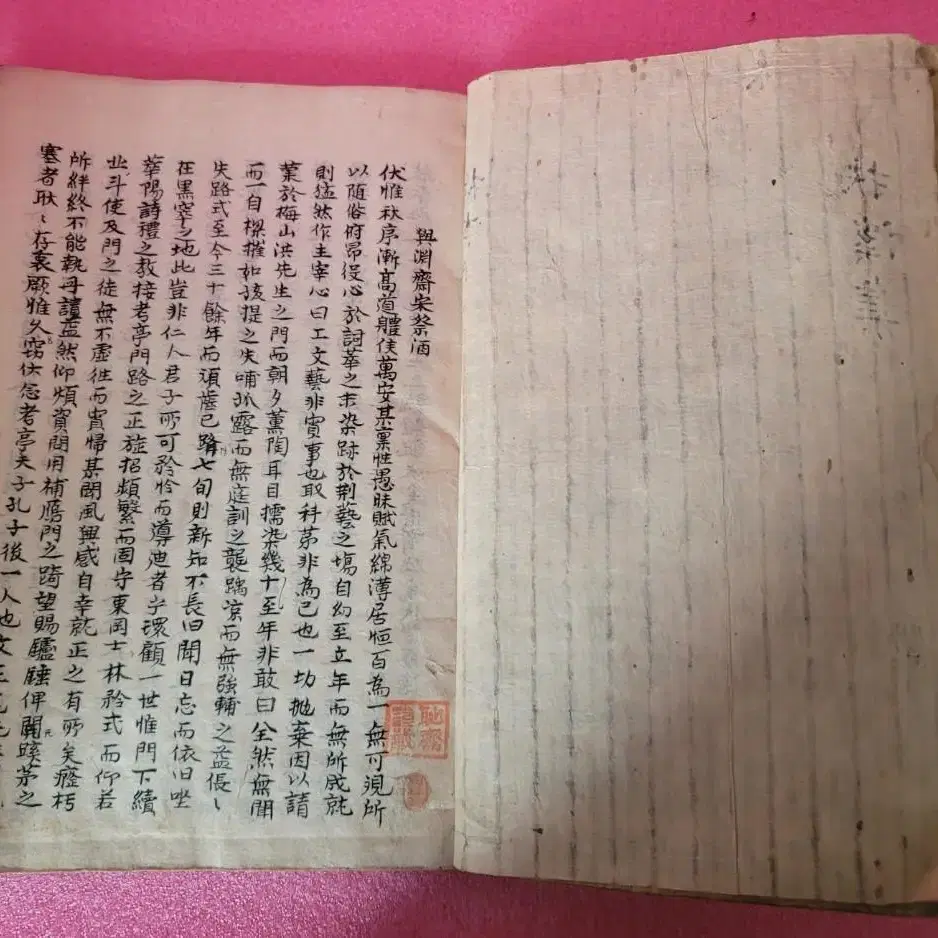 與淵齋宋祭酒
伏惟秋序漸高道體候萬安某稟性愚昧賦氣綿薄居恒百為一無可規所
以隨俗俯昂役心於詞華之末染跡於荊藝之塲自幼至立年而無所成就
則猛然作主宰心曰工文藝非實事也取科苐非為己也一切抛棄因以請
業於梅山洪先生之門而朝夕薰陶耳目擩染幾十至年非敢曰全然無聞
而一自樑摧如孩提之失哺孤露而無庭訓之襲踽凉而無強輔之益倀〻
失路式至今三十餘年而頭齒已躋七旬則新知不長旧聞日忘而依旧坐
在黑窣之地此豈非仁人君子所可矜怜而導迪者乎環顧一世惟門下續
華陽詩禮之教接考亭門路之正旋招頻繁而固守東岡士林矜式而仰若
北斗使及門之徒無不虛徃而實歸某聞風興感自幸就正之有所矣癃朽
所絆終不能執冊請益然仰煩資問用補鴈門之踦望賜鑪錘俾開蹊茅之
塞者耿〻存衷願惟久窃伏念考亭夫子孔子後一人也